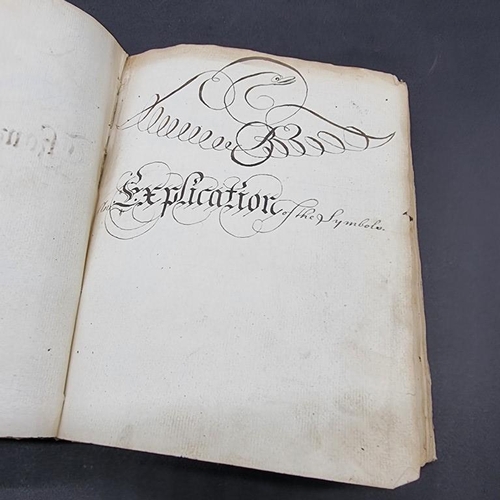 The Explication of the Symbols.